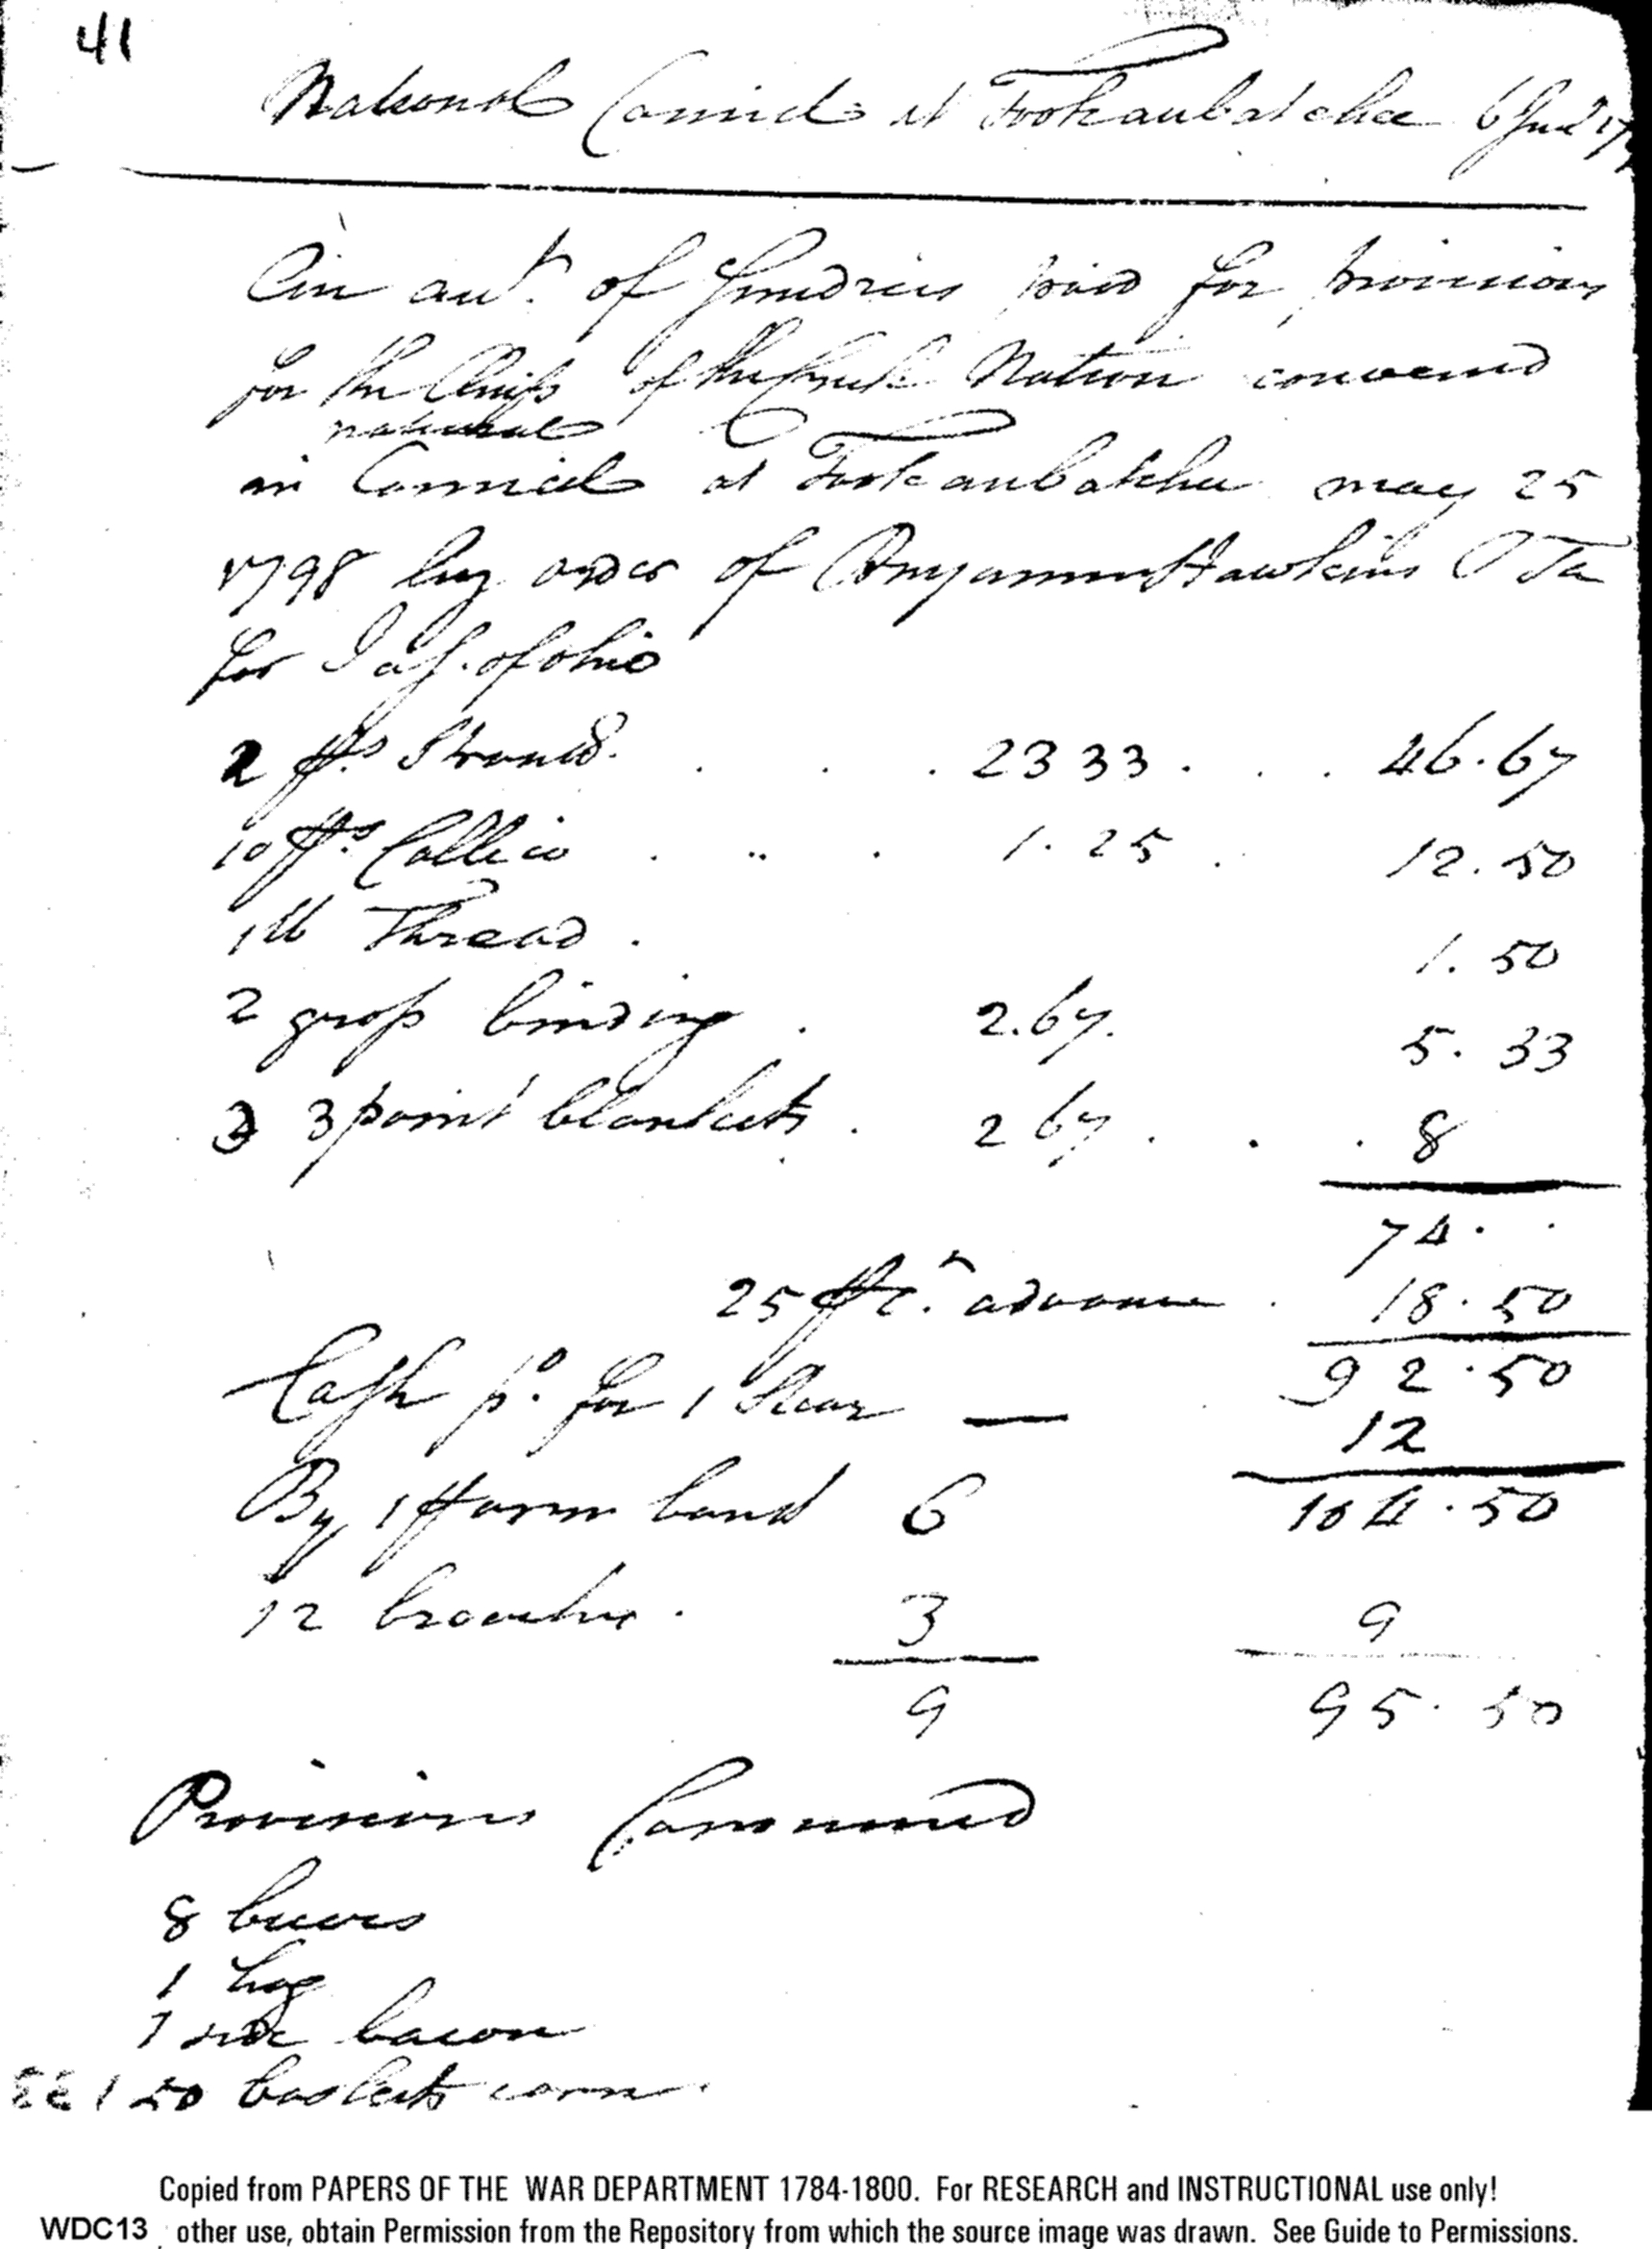 41
National Council at Tookaubatchee 6 June 17
An acct. of sundries paid for provisions
for the Chiefs of the Creek Nation convened
national
in Council at Tookaubatchee may 25
1798 by order of Benjamin Hawkins P T a
for I aff. of ohio
2 ps. Strouds . . . 23 33 . . . 46.67
10 ps. Callico . .. . 1.25 . 12.50
1 lb Thread . 1.50
2 gross binding . 2.67. 5.33
3 3 point blankets . 2 67 . . . 8
74. .
25 pr. Ct. advance . 18.50
92.50
Cash pd. for 1 Steer — 12
By 1 arm band 6 104.50
12 broaches . 3 9
9 95.50
Provisions Consumed
8 beeves
1 hog
1 side bacon
150 baskets corn.
Copied from PAPERS OF THE WAR DEPARTMENT 1784-1800. For RESEARCH and INSTRUCTIONAL use only!
WDC13 other use, obtain Permission from the Repository from which the source image was drawn. See Guide to Permissions.